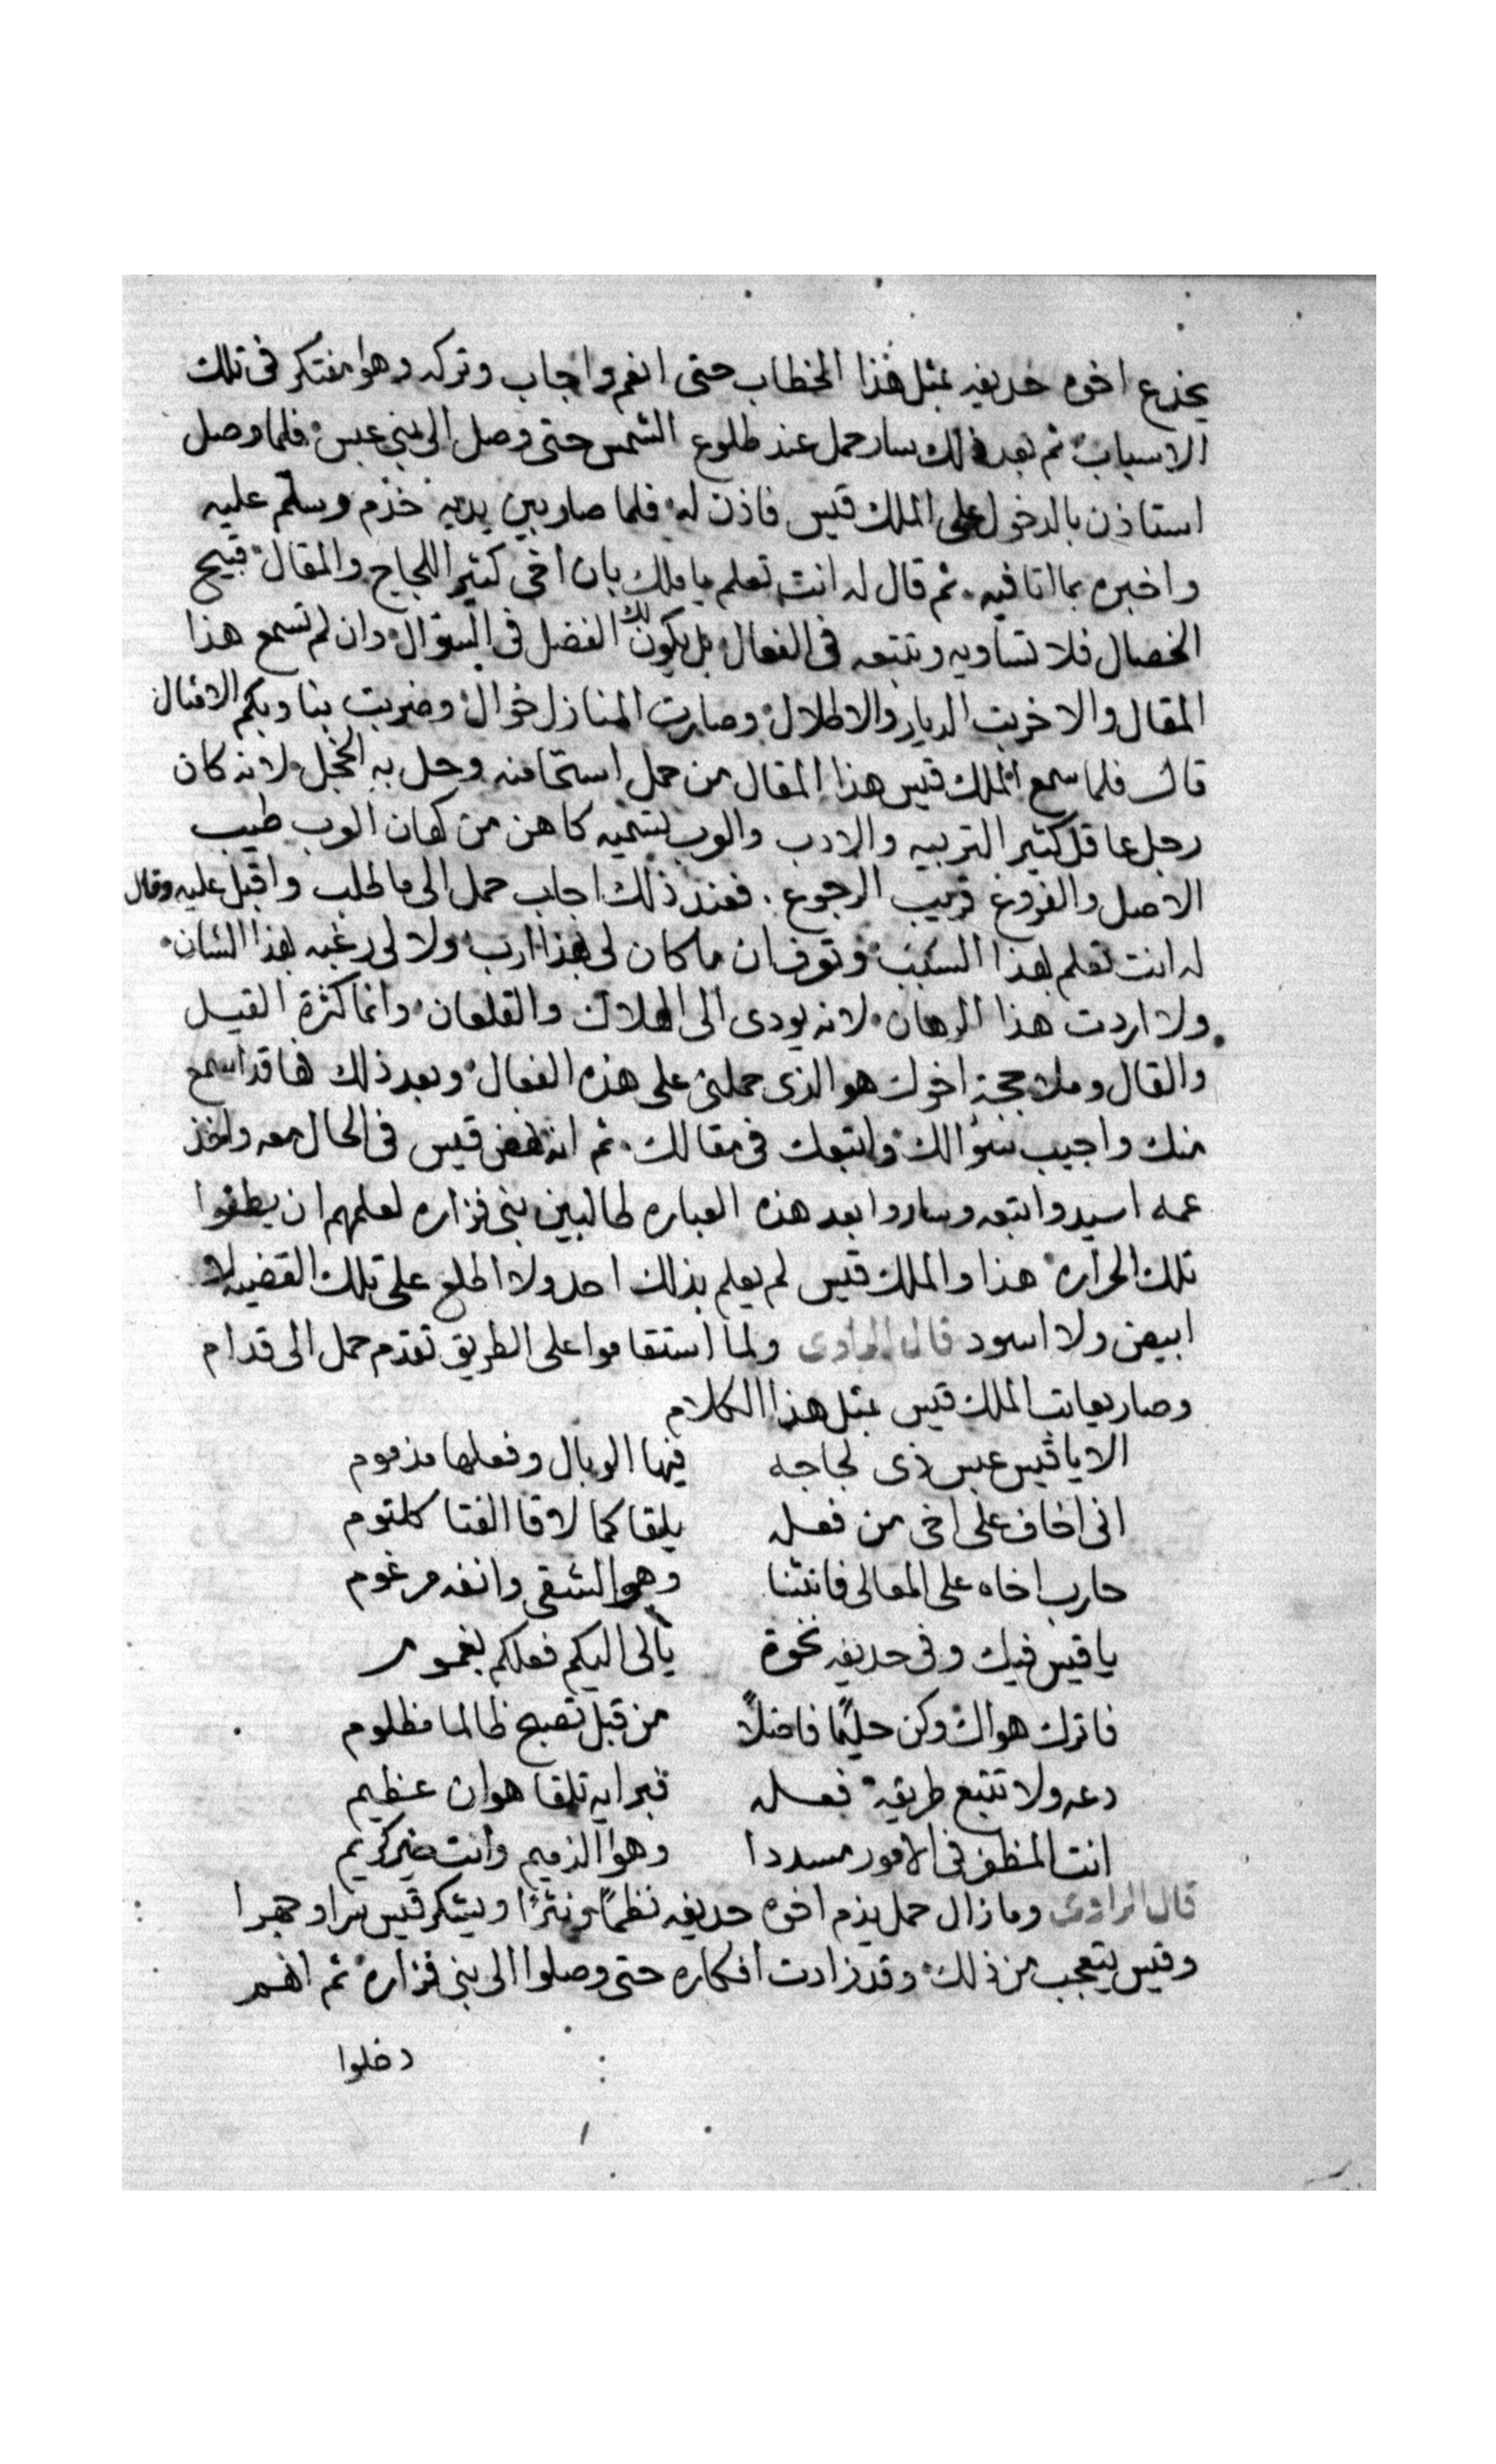 يخدع اخوه حديفه بمثل هذا الخطاب حتى انعم واجاب وتركه وهوا مفتكر فى تلك
الاسباب ثم بعد ذلك سار حمل عند طلوع الشمس حتى وصل الى بنى عبس فلما وصل
استاذن بالدخول على الملك قيس فاذن له فلما صار بين يديه خذم وسلم عليه
واخبره بما اتا فيه ثم قال له انت تعلم يا ملك بان اخى كتير اللجاج والمقال قبيح
الخصال فلا تساويه وتتبعه فى الفعال بل يكون لك الفضل فى السؤال وان لم تسمع هذا
المقال والا خربت الديار والاطلال وصارت المنازل خوال وضربت بنا وبكم الامثال
قال فلما سمع الملك قيس هذا المقال من حمل استحا منه وحل به الخجل لانه كان
رجل عاقل كثير التربيه والادب والعرب تسميه كاهن من كهان العرب طيب
الاصل والفروع قريب الرجوع . فعند ذلك اجاب حمل الى ما طلب واقبل عليه وقال
له انت تعلم بهذا السبب وتعرف ان ما كان لى بهذا ارب ولا لى رغبه بهذا الشان
ولا اردت هذا الرهان لانه يودى الى الهلاك والقلعان وانما كثرة القيل
والقال وملاججة اخوك هو الذى حملنى على هذه الفعال وبعد ذلك ها قد اسمع
منك واجيب سؤالك واتبعك فى مقالك ثم انه نهض قيس فى الحال معه واخذ
عمه اسيد واتبعه وساروا بعد هذه العباره طالبين بنى فزاره لعلهم ان يطفوا
تلك الحراره هذا والملك قيس لم يعلم بذلك احد ولا اطلع على تلك القضيه لا
ابيض ولا اسود قال الراوى ولما استقاموا على الطريق تقدم حمل الى قدام
وصار يعاتب الملك قيس بمثل هذا الكلام
الا يا قيس عبس ذى لجاجه فيها الوبال وفعلها مذموم
انى اخاف على اخى من فعله يلقا كما لاقا الفتا كلتوم
حارب اخاه على المعالى فانثنا وهو الشقى وانفه مرغوم
يا قيس فيك وفى حديفه نخوة اليكم فعلكم
فاترك هواك وكن حليمًا فاضلاً من قبل تصبح ظالما مظلوم
دعه ولا تتبع طريقة فعله فبرايه تلقا هوان عظيم
انت المظفر فى الامور مسددا وهوا الذميم وانت خير كريم
قال الراوى وما زال حمل يذم اخوه حديفه نظمًا ونثرًا ويشكر قيس سرا وجهرا
وقيس يتعجب من ذلك وقد زادت افكاره حتى وصلوا الى بنى فزاره ثم انهم
دخلوا